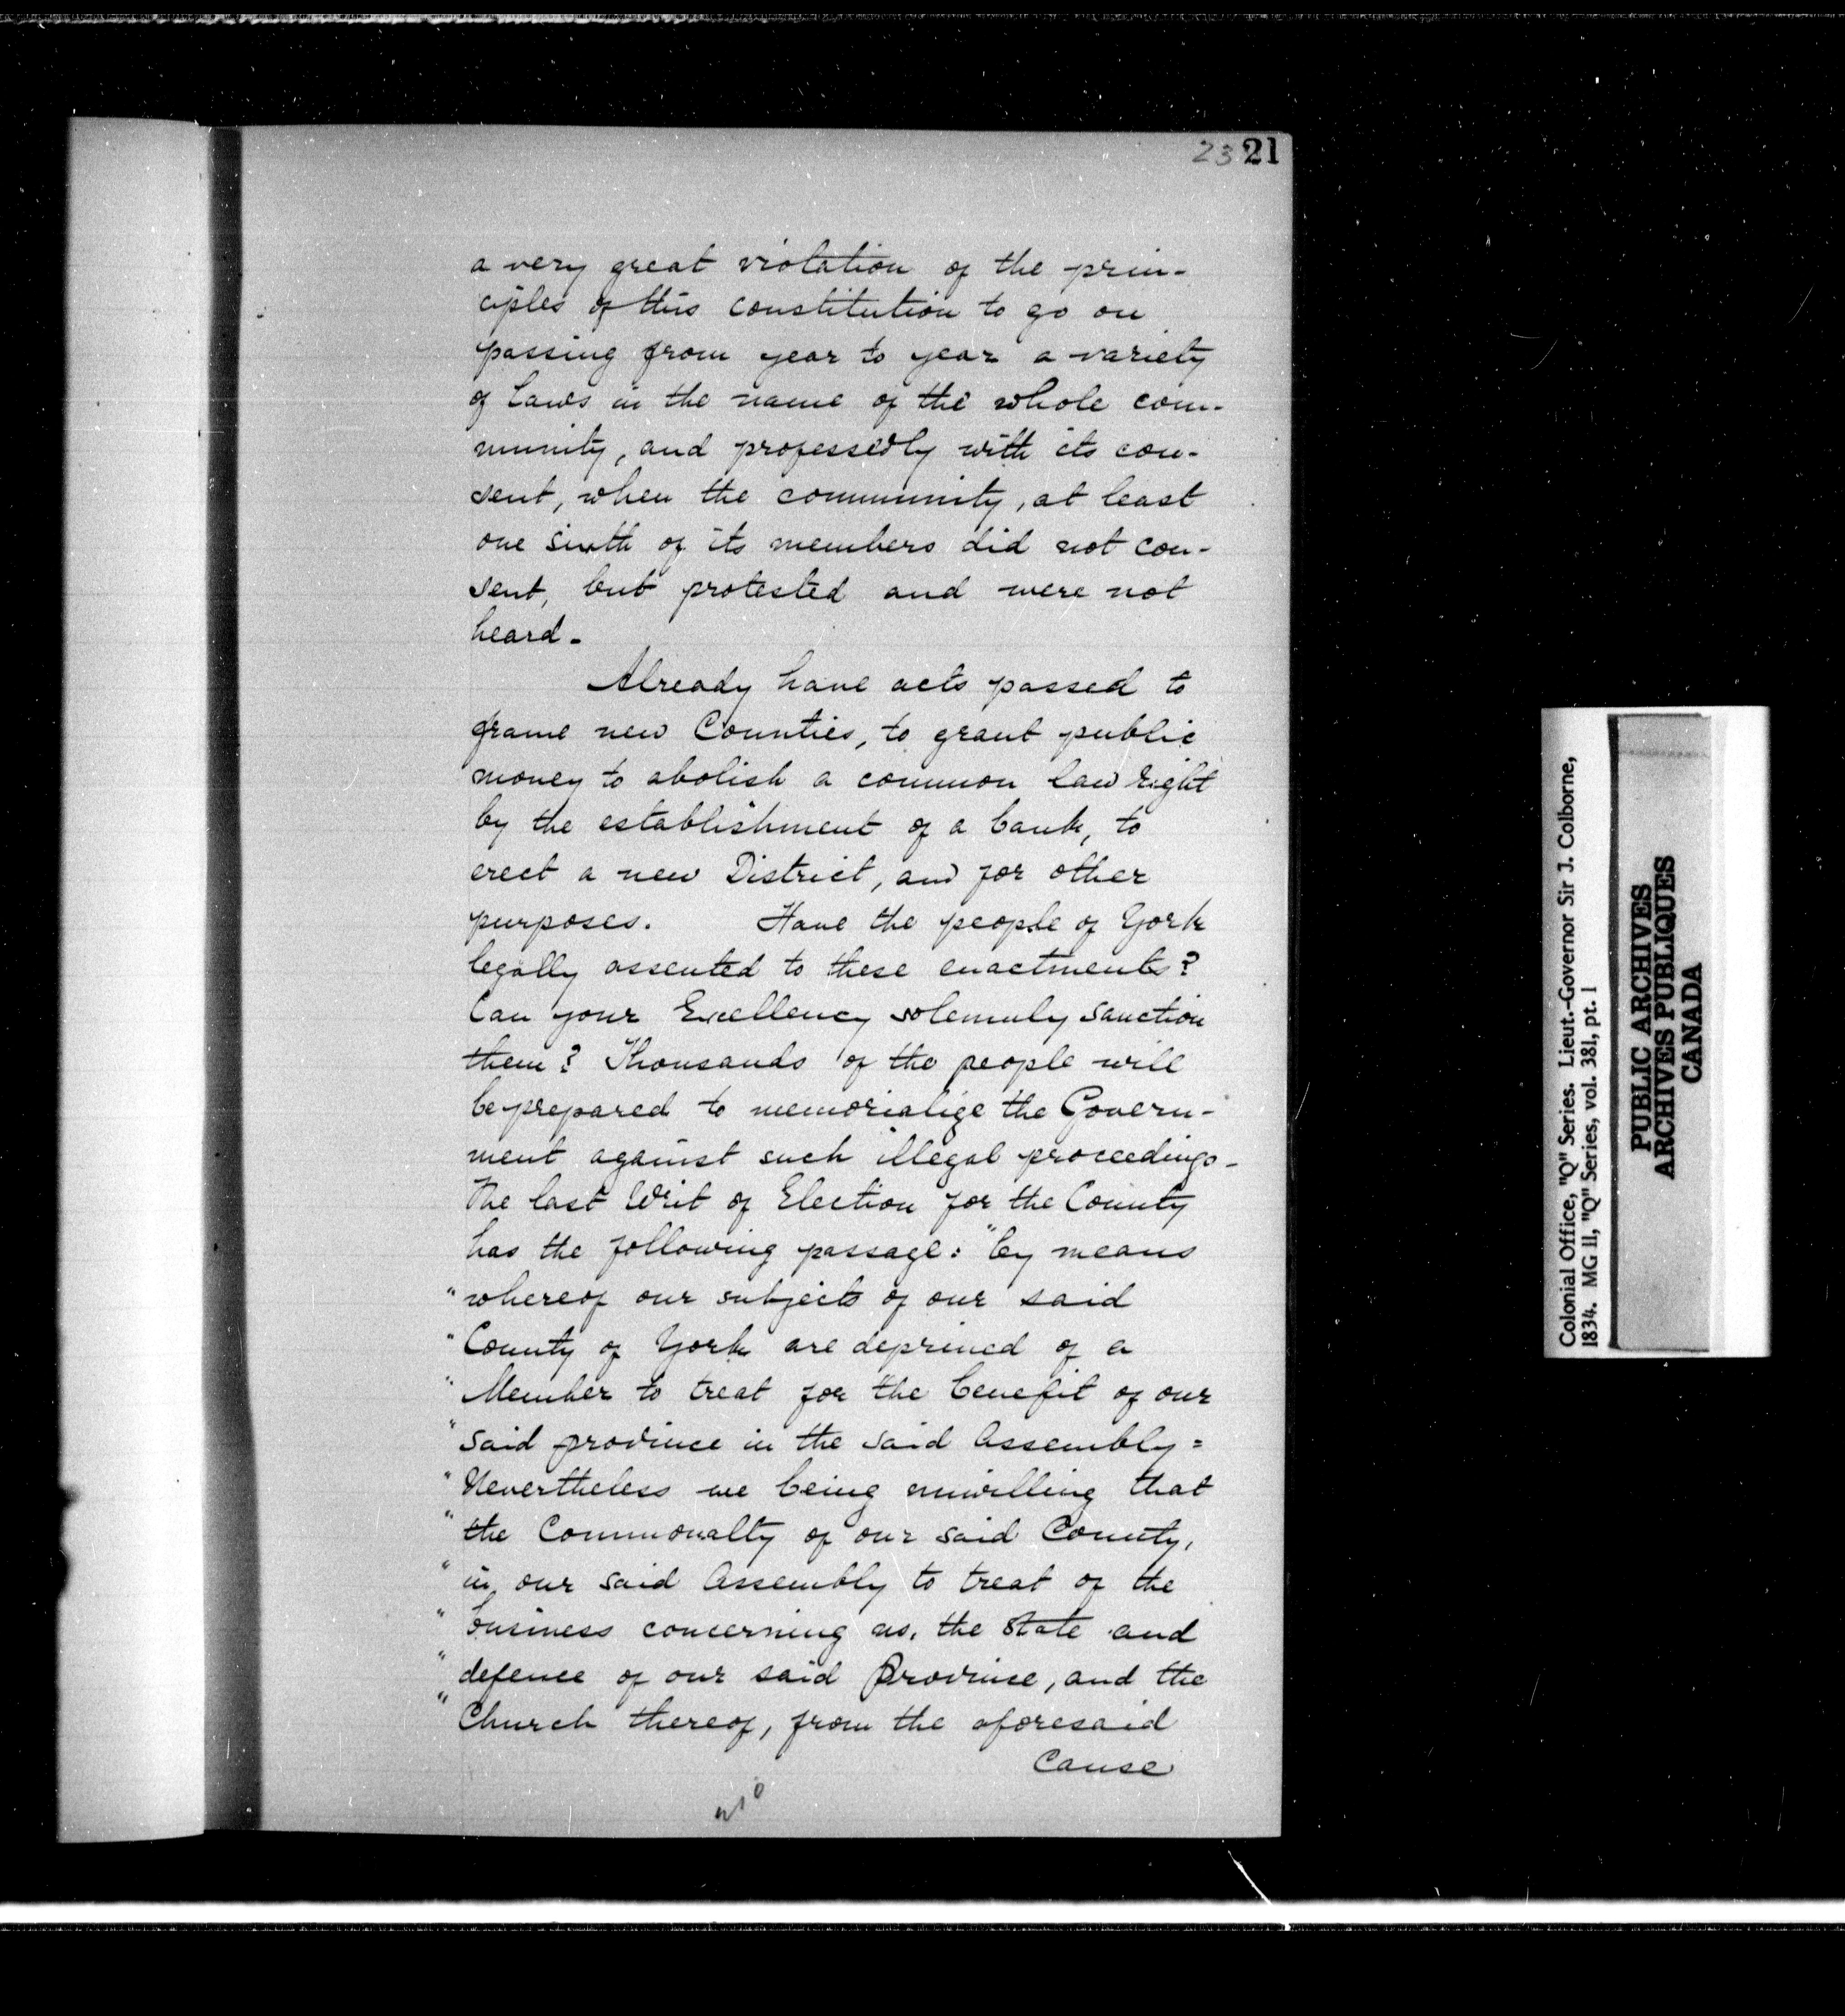 23 21
a very great violation of the prin-
ciples of this constitution to go on
passing from year to year a variety
of laws in the name of the whole com-
munity, and professedly with its con-
sent, when the community, at least
one sixth of its members did not con-
sent, but protested and were not
heard-
Already have acts passed to
frame new Counties, to grant public
money to abolish a common law right
by the establishment of a bank, to
erect a new District, and for other
purposes. Have the people of York
legally assented to these enactments?
Can your Excellency solemnly sanction
them? Thousands of the people will
be prepared to memorialize the Govern-
ment against such illegal proceedings-
The last Writ of Election for the County
has the following passage: "by means
"whereof our subjects of our said
"County of York are deprived of a
"Member to treat for the benefit of our
"said province in the said Assembly=
"Nevertheless we being unwilling that
"the Commonalty of our said County,
"in our said Assembly to treat of the
"business concerning us, the State and
"defence of our said Province, and the
"Church thereof, from the aforesaid
Cause
Colonial Office, "Q" Series. Lieut.-Governor Sir J. Colborne,
1834. MG 11, "Q" Series, vol. 381, pt. 1
PUBLIC ARCHIVES
ARCHIVES PUBLIQUES
CANADA